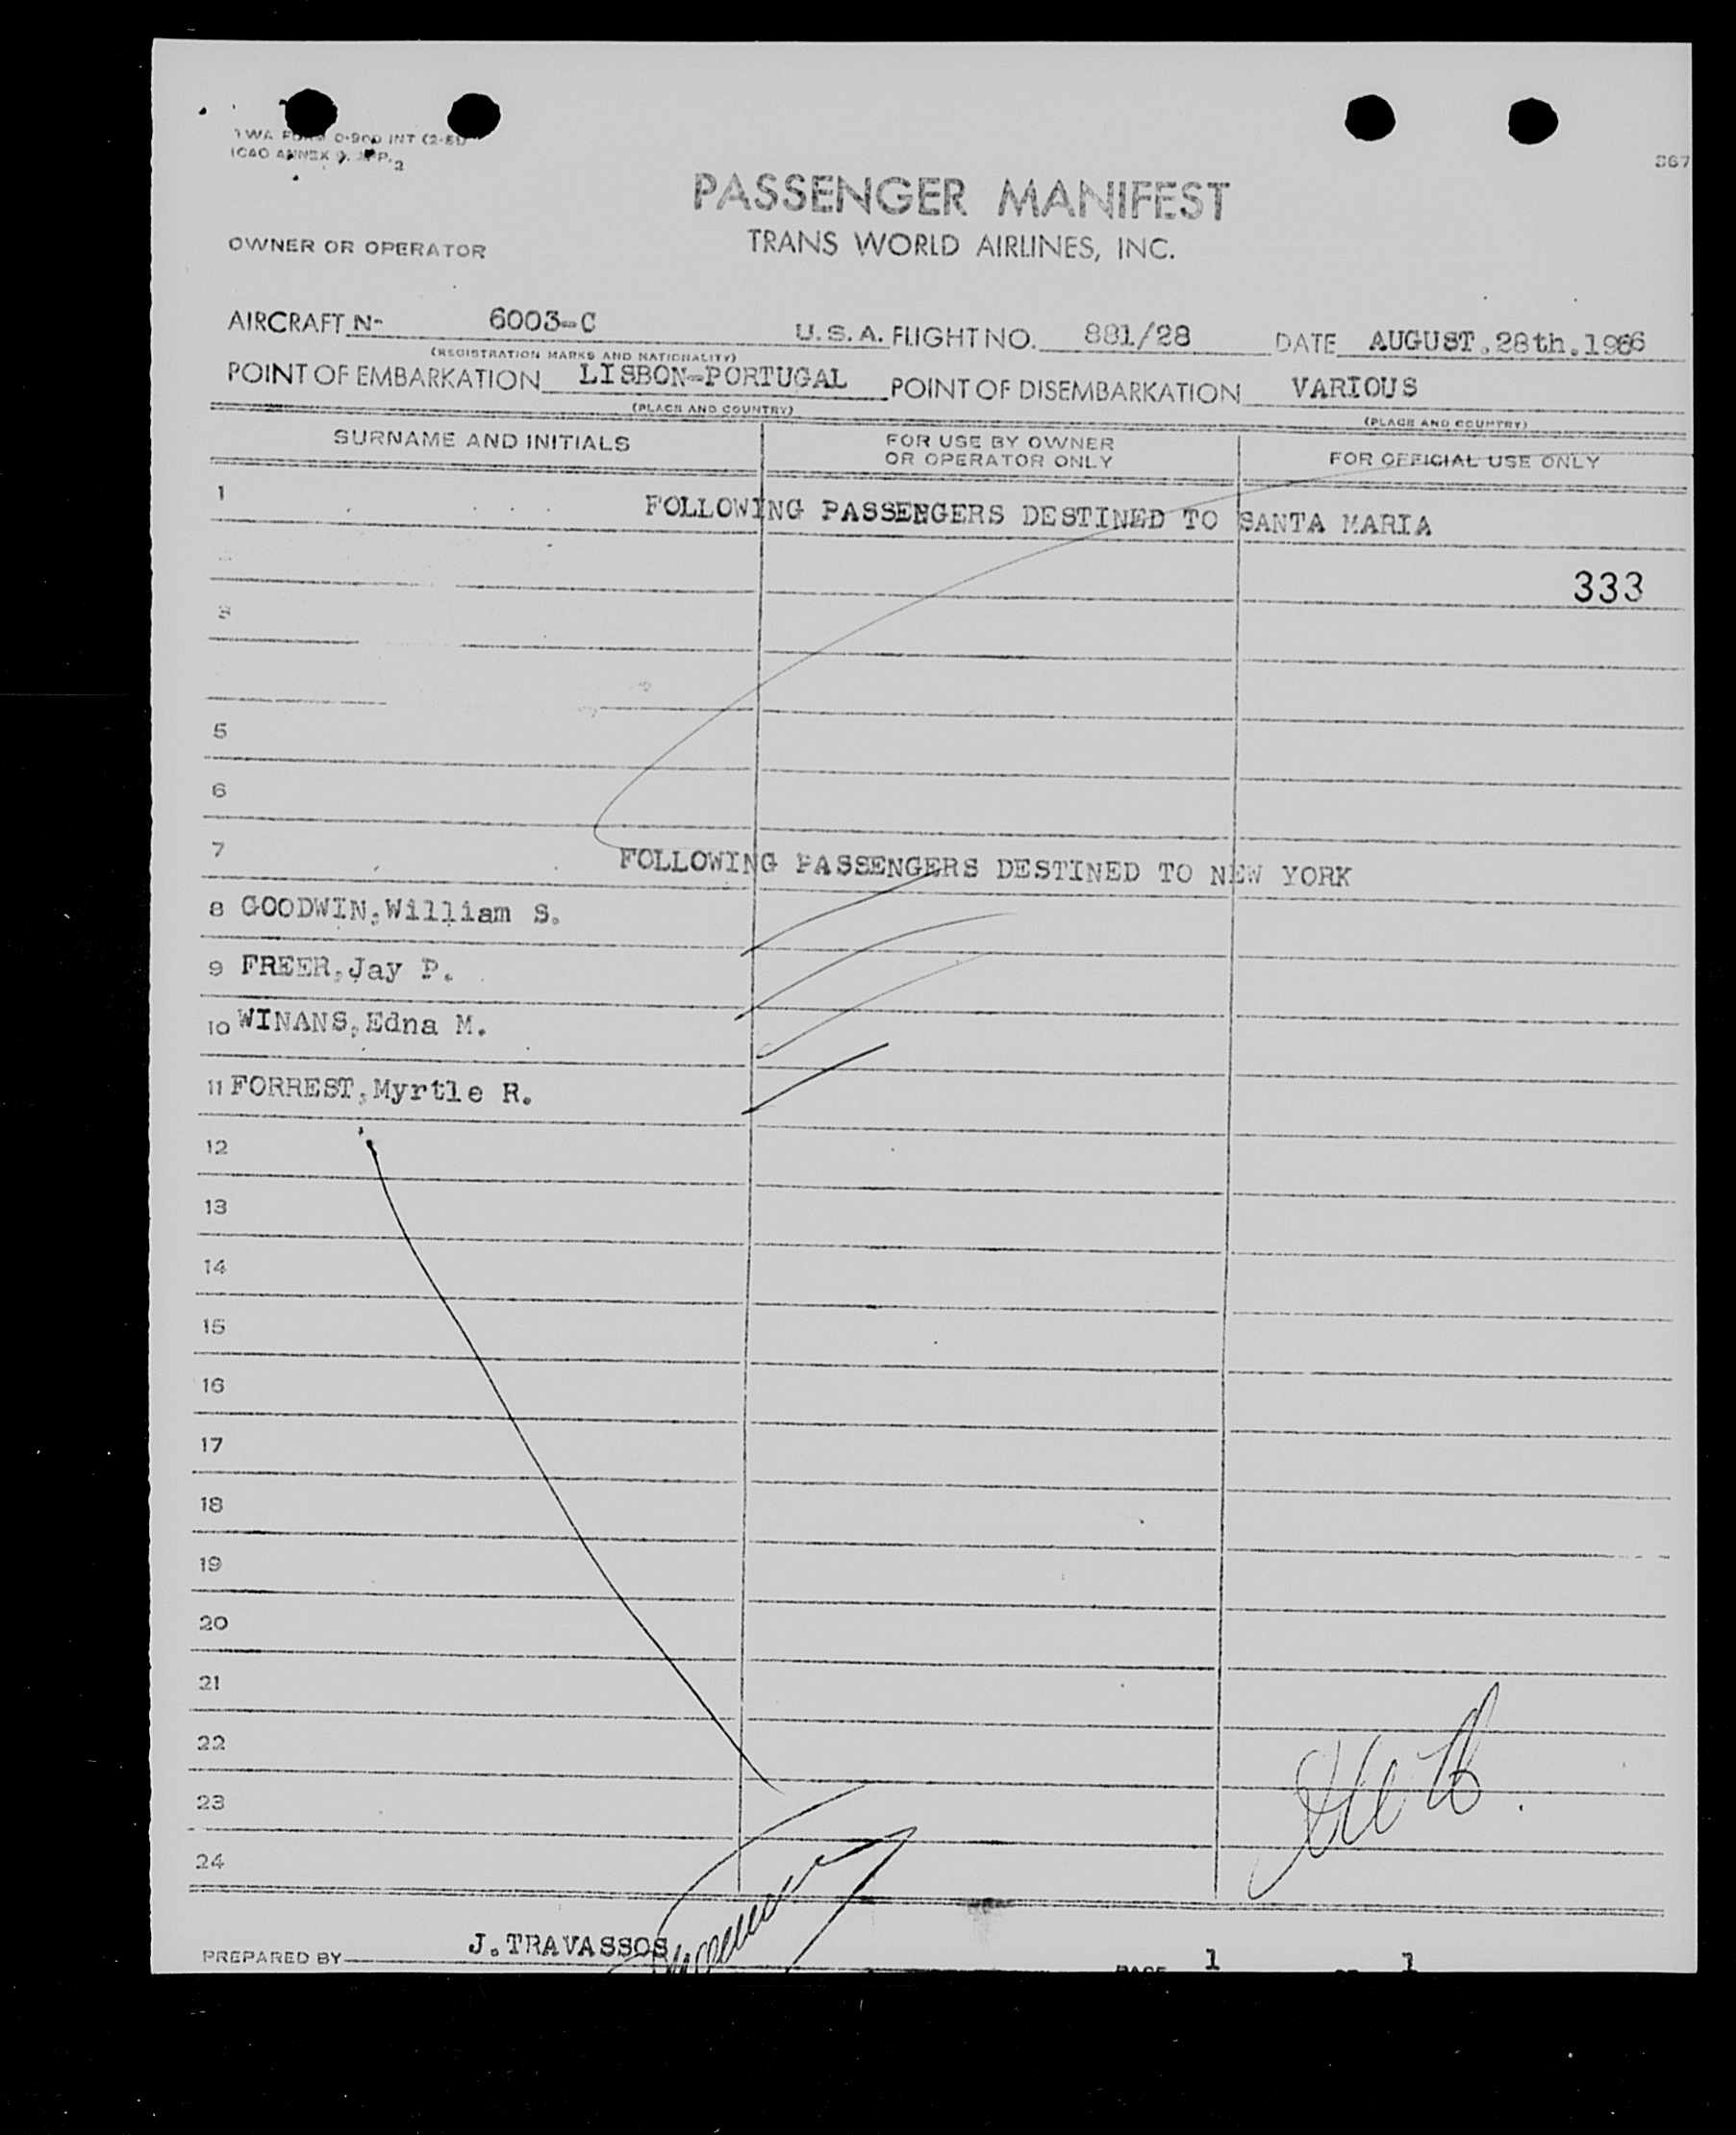 TWA FORM O-900 INT (2-51)
ICAO ANNEX 9, APP. 2
367
PASSENGER MANIFEST
OWNER OR OPERATOR
TRANS WORLD AIRLINES, INC.
AIRCRAFT N- 6003-C U.S.A. FLIGHT NO. 881/28 DATE AUGUST.28th.1956
(REGISTRATION MARKS AND NATIONALITY)
POINT OF EMBARKATION LISBON-PORTUGAL POINT OF DISEMBARKATION VARIOUS
(PLACE AND COUNTRY) (PLACE AND COUNTRY)
SURNAME AND INITIALS FOR USE BY OWNER OR OPERATOR ONLY FOR OFFICIAL USE ONLY
1 FOLLOWING PASSENGERS DESTINED TO SANTA MARIA
333
3
5
6
7 FOLLOWING PASSENGERS DESTINED TO NEW YORK
8 GOODWIN,William S.
9 FREER,Jay P.
10 WINANS,Edna M.
11 FORREST,Myrtle R.
12
13
14
15
16
17
18
19
20
21
22
23
24
PREPARED BY J.TRAVASSOS PAGE 1 OF 1